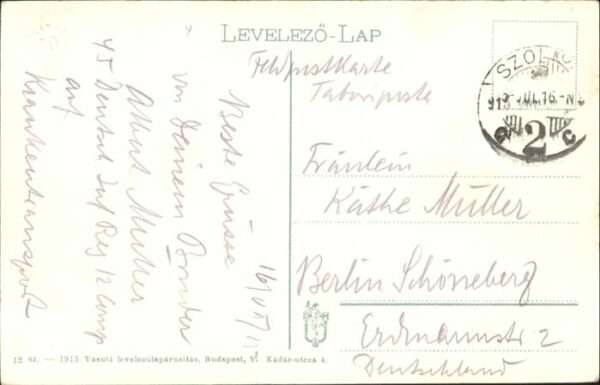 LEVELEZŐ-LAP
Feldpostkarte
Tabori posta
SZOLNOK
2
Fräulein
Käthe Müller
Berlin Schöneberg
Erdmannstr 2
Deutschland
16/VII
Beste Grüsse
von Deinem Bruder
Albert Müller
45 Deutsch Inf Reg 12 Comp
auf
Krankentransport
12 sz. — 1915 Vasuti levelezőlapárusitás, Budapest, VI. Kádár-utcza 4.